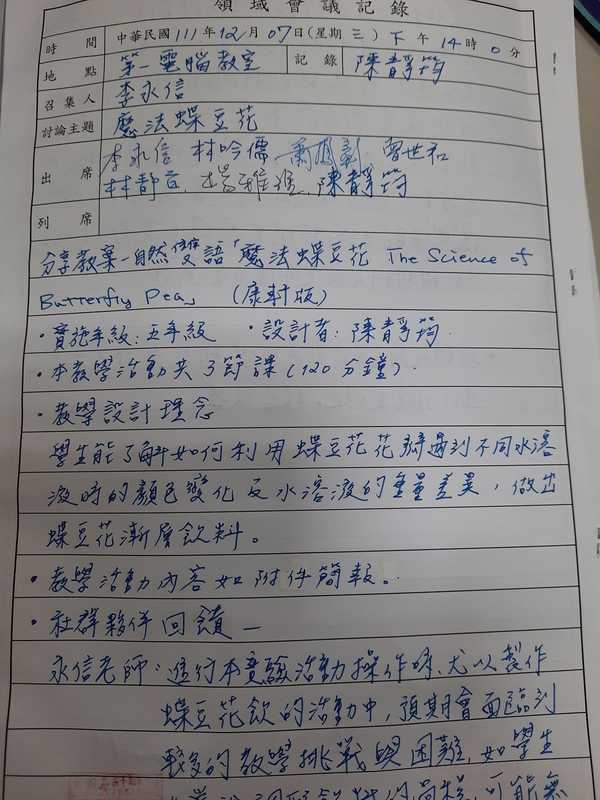 領域會議記錄
時間 中華民國 111 年 12 月 07 日(星期 三) 下 午 14 時 0 分
地點 第一電腦教室 記錄 陳靜筠
召集人 李永信
討論主題 魔法蝶豆花
出席 李永信 林吟儒 曾世和
陳靜筠
列席
分享教案-自然 雙語「魔法蝶豆花 The Science of
Butterfly Pea」 (康軒版)
·實施年級:五年級 ·設計者:陳靜筠
·本教學活動共3節課(120分鐘)
·教學設計理念
學生能了解如何利用蝶豆花花 遇到不同水溶
液時的顏色變化及水溶液的重量差異,做出
蝶豆花漸層飲料。
·教學活動內容如附件簡報。
·社群夥伴回饋—
永信老師:進行本實驗活動操作時,尤以製作
蝶豆花飲的活動中,預期會面臨到
較多的教學挑戰與困難,如學生
可能無